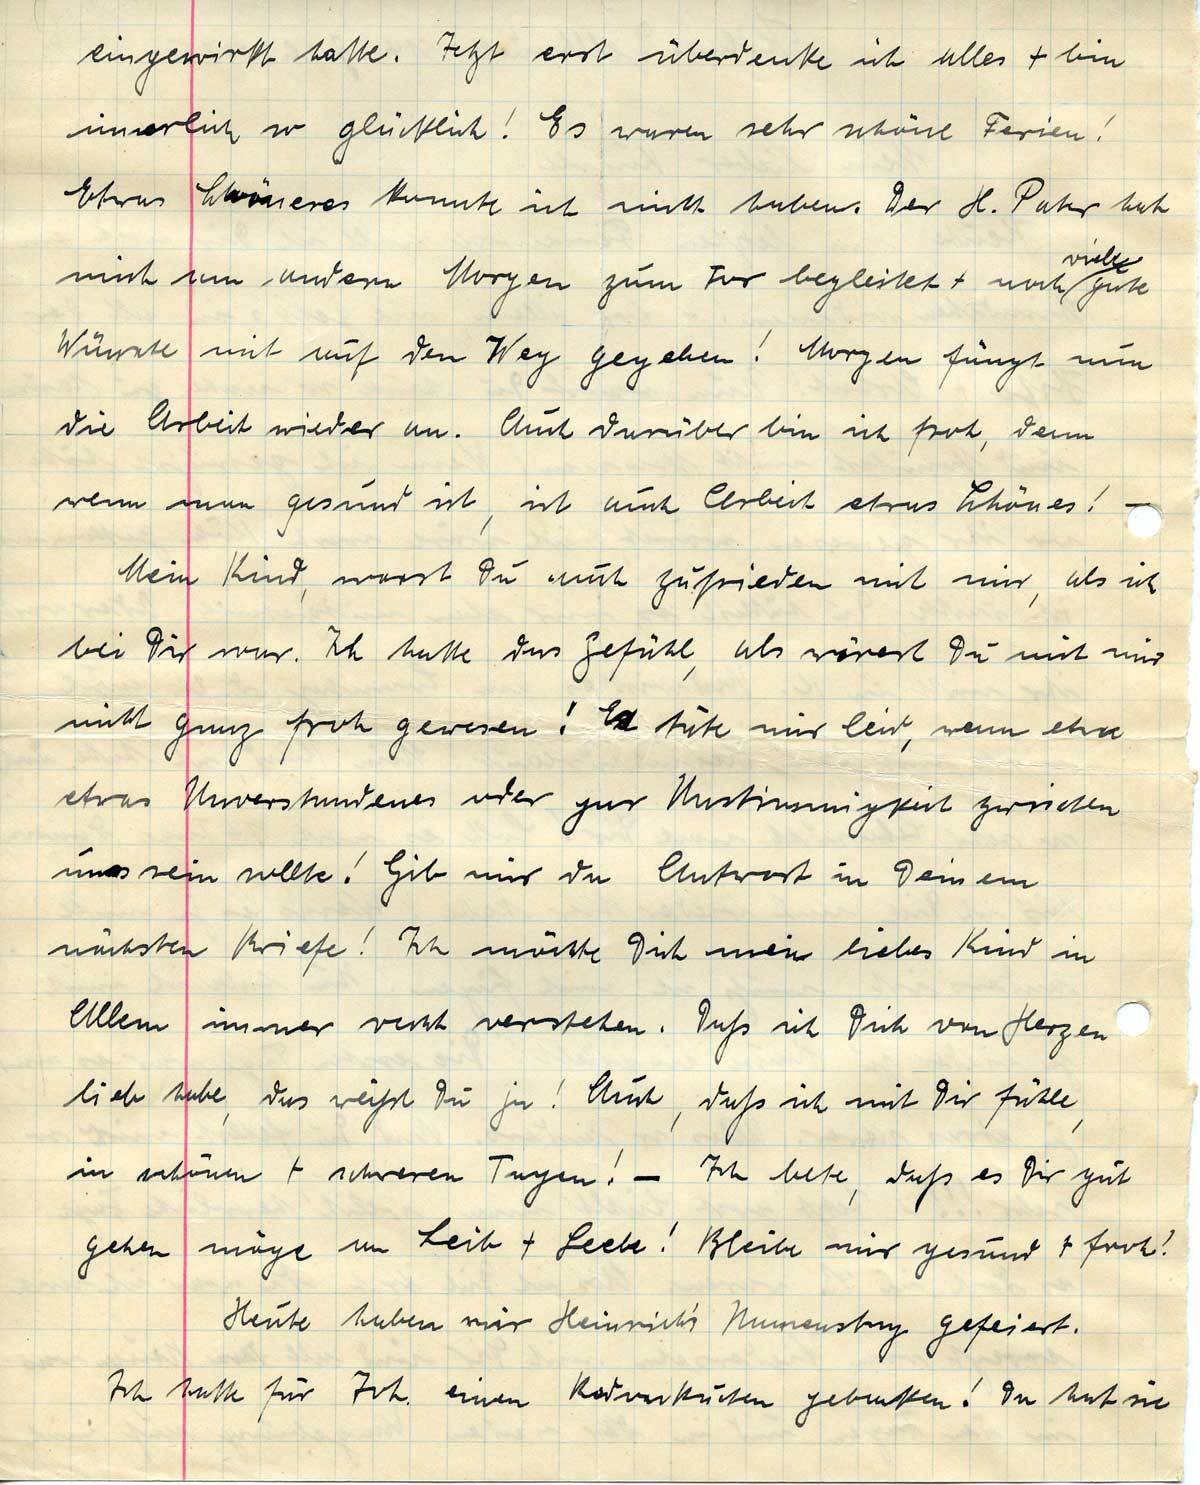 eingewirkt hatte. Jetzt erst überdenke ich alles + bin
innerlich so glücklich! Es waren sehr schöne Ferien!
Etwas Schöneres konnte ich nicht haben. Der H. Pater hat
mich am andern Morgen zum Tor begleitet + noch viele gute
Wünsche mit auf den Weg gegeben! Morgen fängt nun
die Arbeit wieder an. Auch darüber bin ich froh, denn
wenn man gesund ist, ist auch Arbeit etwas Schönes! –
Mein Kind, warst Du auch zufrieden mit mir, als ich
bei Dir war. Ich hatte das Gefühl, als wärest Du mit mir
nicht ganz froh gewesen! Es täte mir leid, wenn etwa
etwas Unverstandenes oder gar Unstimmigkeit zwischen
uns sein sollte! Gib mir da Antwort in Deinem
nächsten Briefe! Ich möchte Dich mein liebes Kind in
Allem immer recht verstehen. Daß ich Dich von Herzen
lieb habe, das weißt Du ja! Auch, daß ich mit Dir fühle,
in schönen + schweren Tagen! – Ich bete, daß es Dir gut
gehen möge an Leib + Seele! Bleibe mir gesund + froh!
Heute haben wir Heinrich's Namenstag gefeiert.
Ich hatte für Joh. einen gebacken! Da hat sie